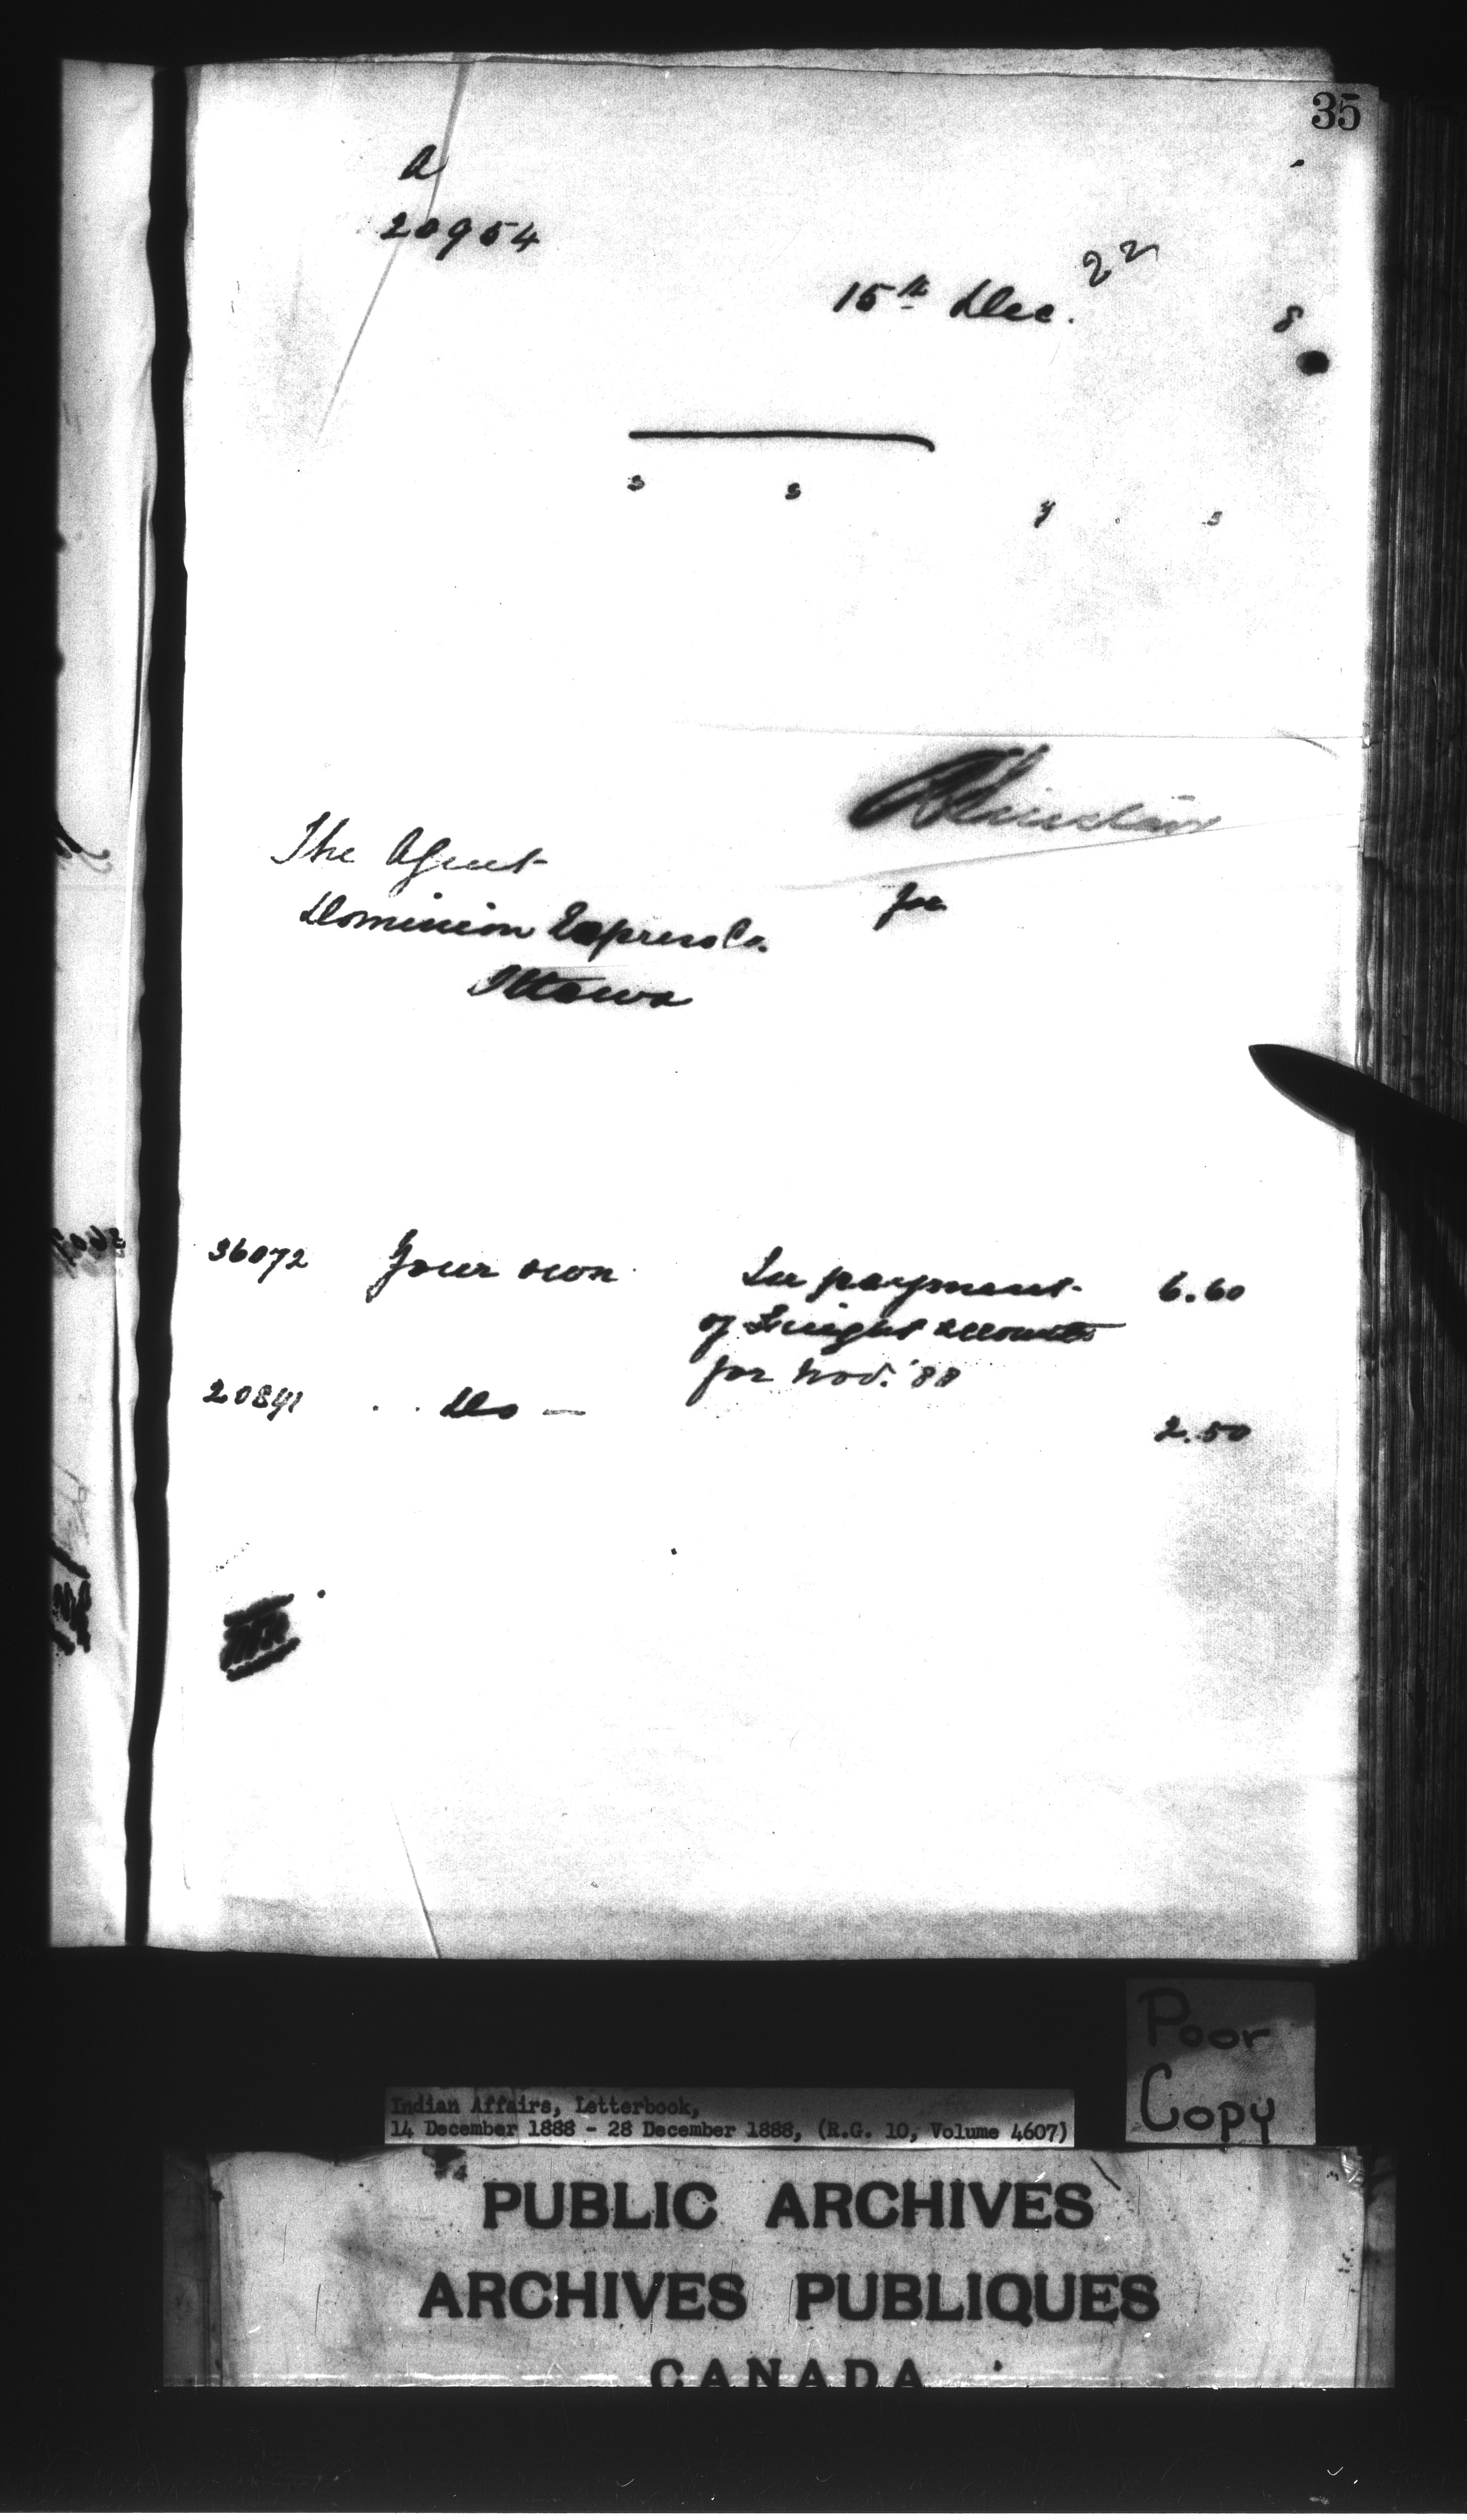 35
A
20954
22
15th Dec. 8
s s y s
The Agent
for
Dominion Express Co.
Ottawa
36072 Your own In payment 6.60
of Freight accounts
for Nov. '88
20841 Do — 2.50
Poor
Copy
Indian Affairs, Letterbook,
14 December 1888 - 28 December 1888, (R.G. 10, Volume 4607)
PUBLIC ARCHIVES
ARCHIVES PUBLIQUES
CANADA